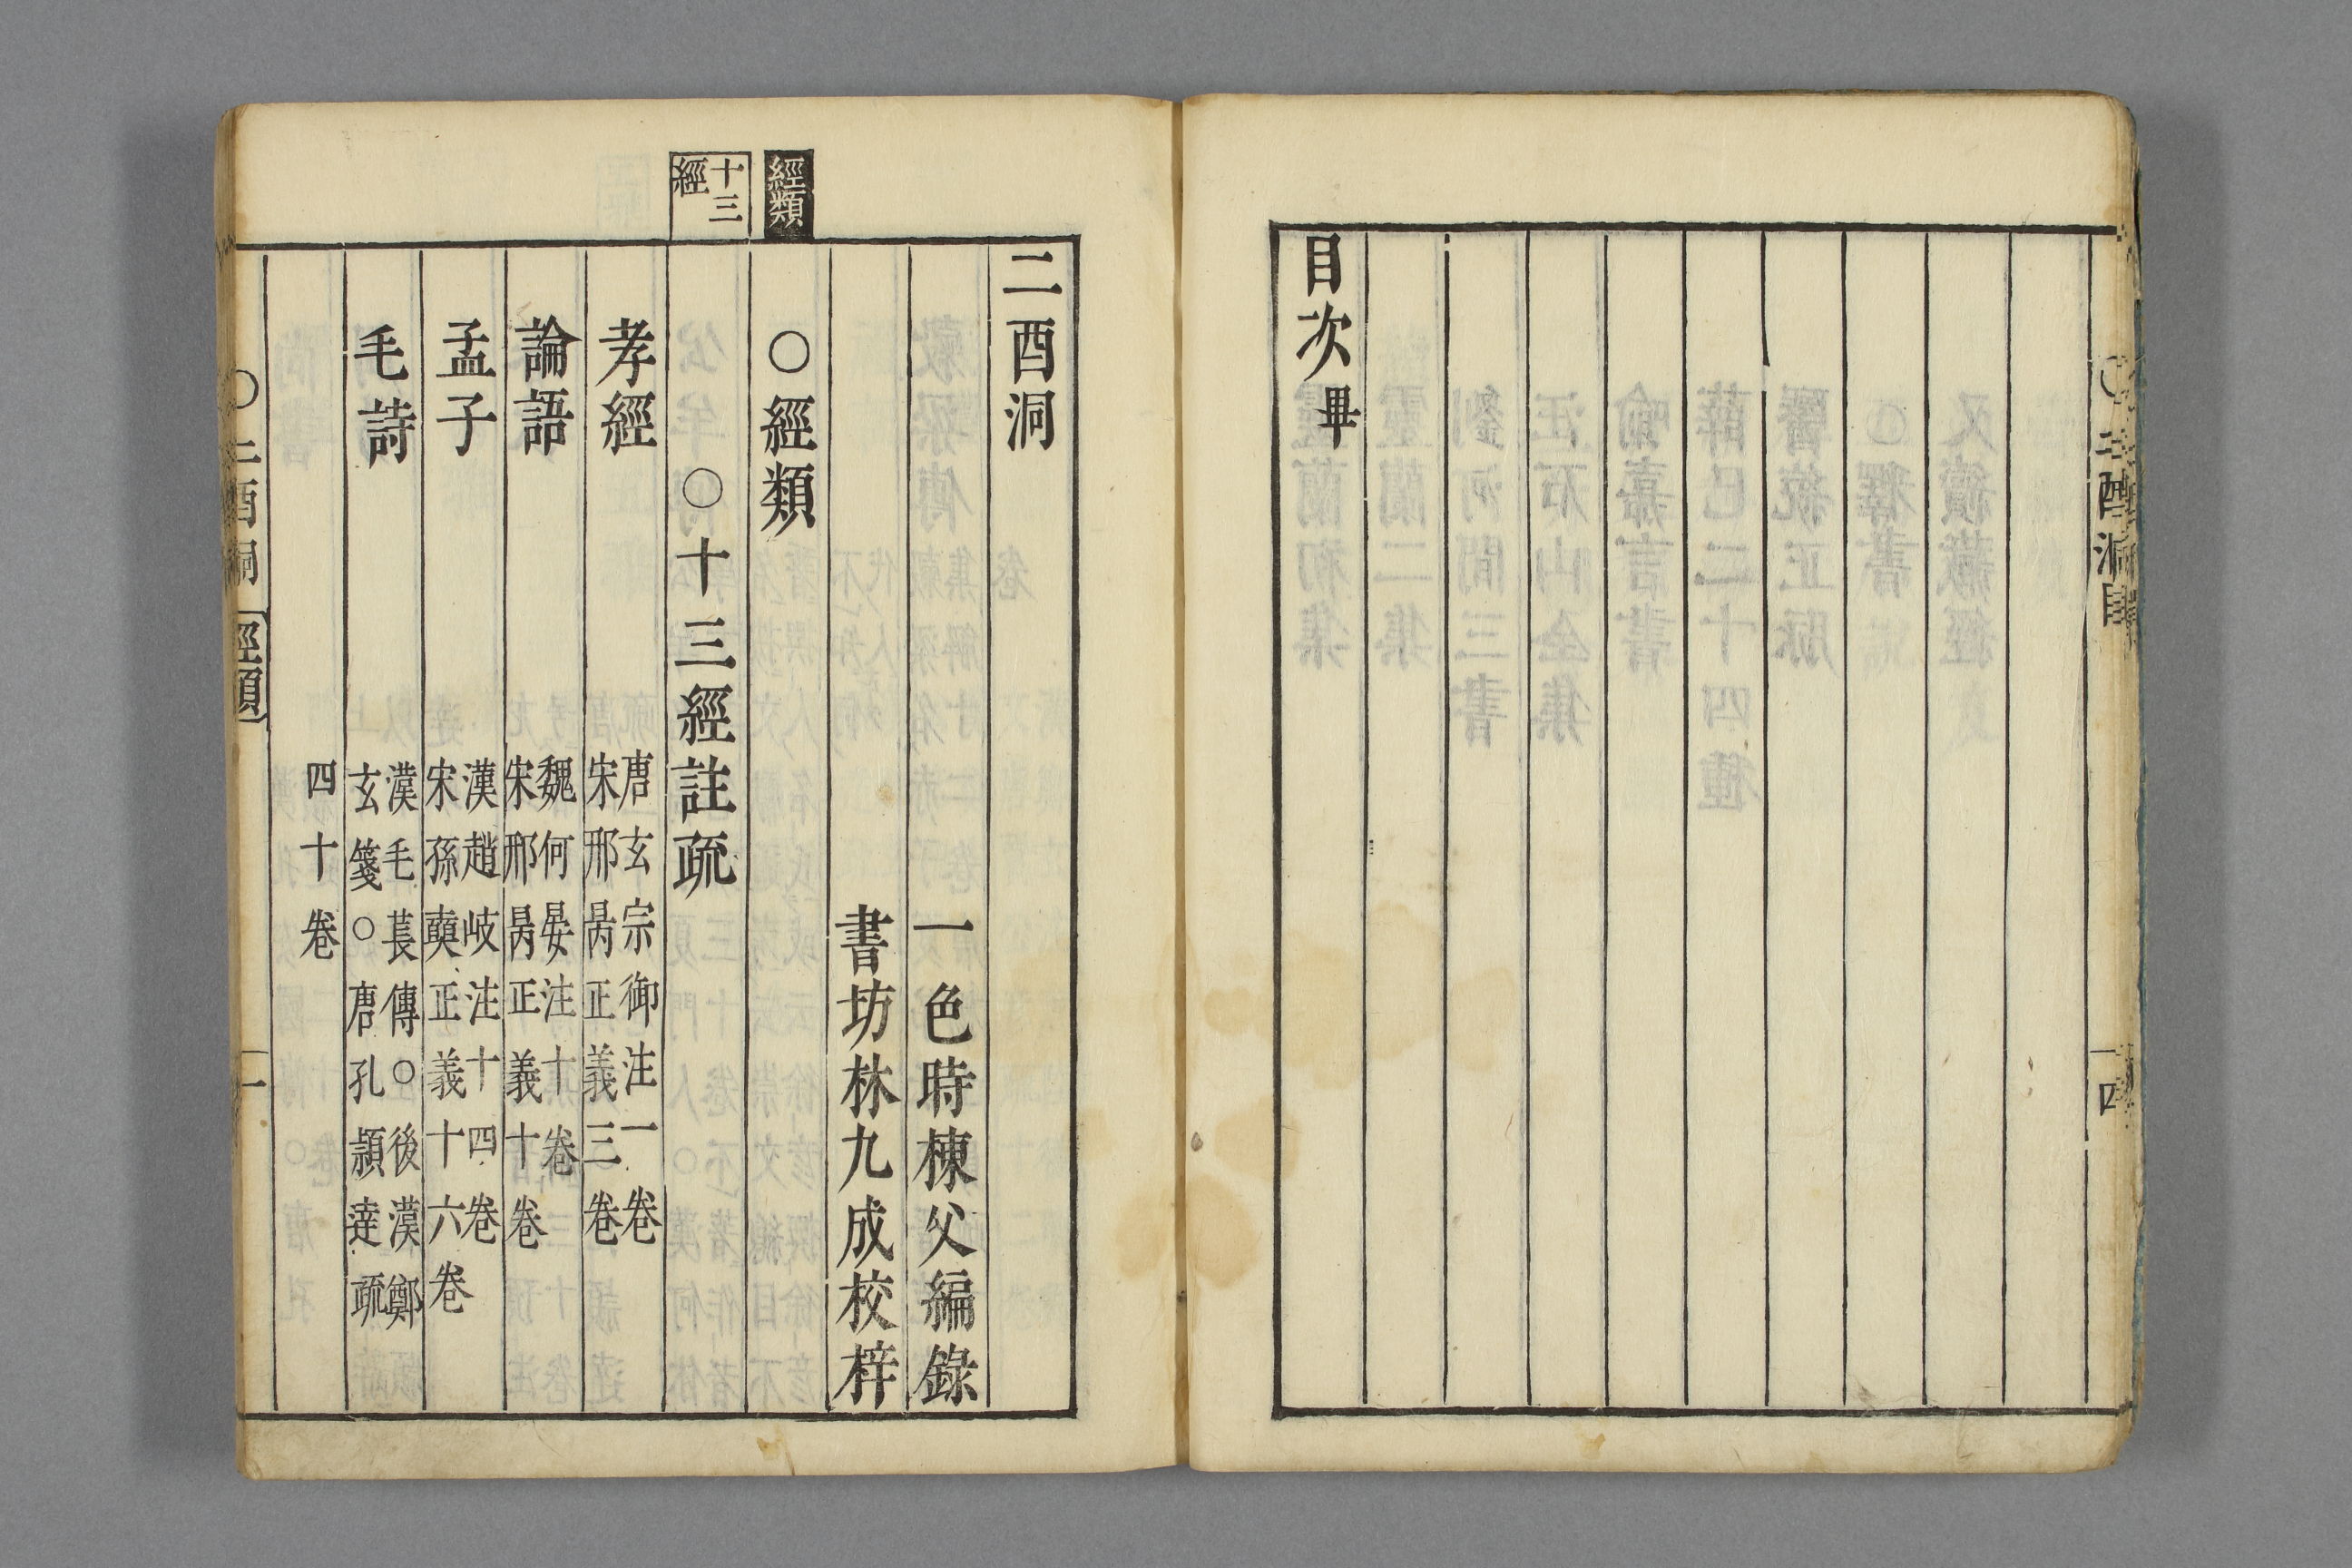 目次畢
二酉洞
一色時棟父編錄
書坊林九成校梓
經類
〇經類
十三
經
〇十三經註疏
孝經
唐玄宗御注一卷
宋邢昺正義三卷
論語
魏何晏注十卷
宋邢昺正義十卷
孟子
漢趙岐注十四卷
宋孫奭正義十六卷
毛詩
漢毛萇傳〇後漢鄭
玄箋〇唐孔頴達疏
四十卷
〇二酉洞
經類
一